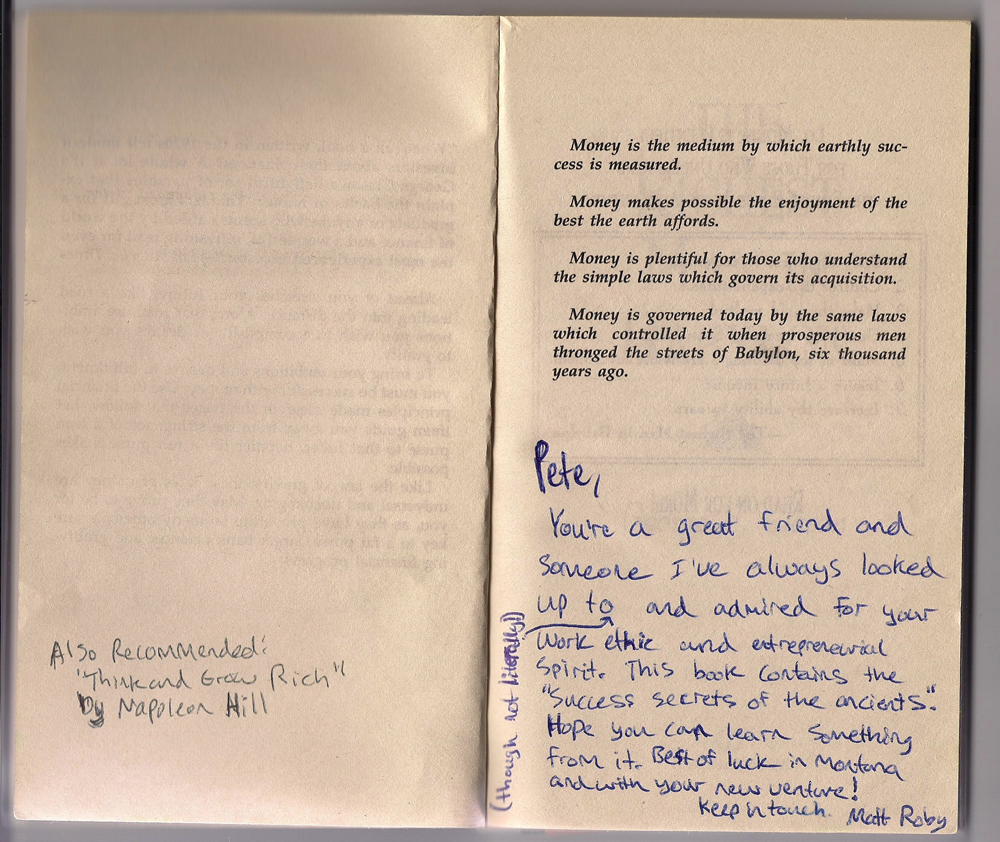 Also Recommended:
"Think and Grow Rich"
by Napoleon Hill
Money is the medium by which earthly suc-
cess is measured.
Money makes possible the enjoyment of the
best the earth affords.
Money is plentiful for those who understand
the simple laws which govern its acquisition.
Money is governed today by the same laws
which controlled it when prosperous men
thronged the streets of Babylon, six thousand
years ago.
Pete,
You're a great friend and
someone I've always looked
up to and admired for your
(though not literally!)
work ethic and entrepreneurial
spirit. This book contains the
"Success secrets of the ancients."
Hope you can learn something
from it. Best of luck in Montana
and with your new venture!
Keep in touch. Matt Roby